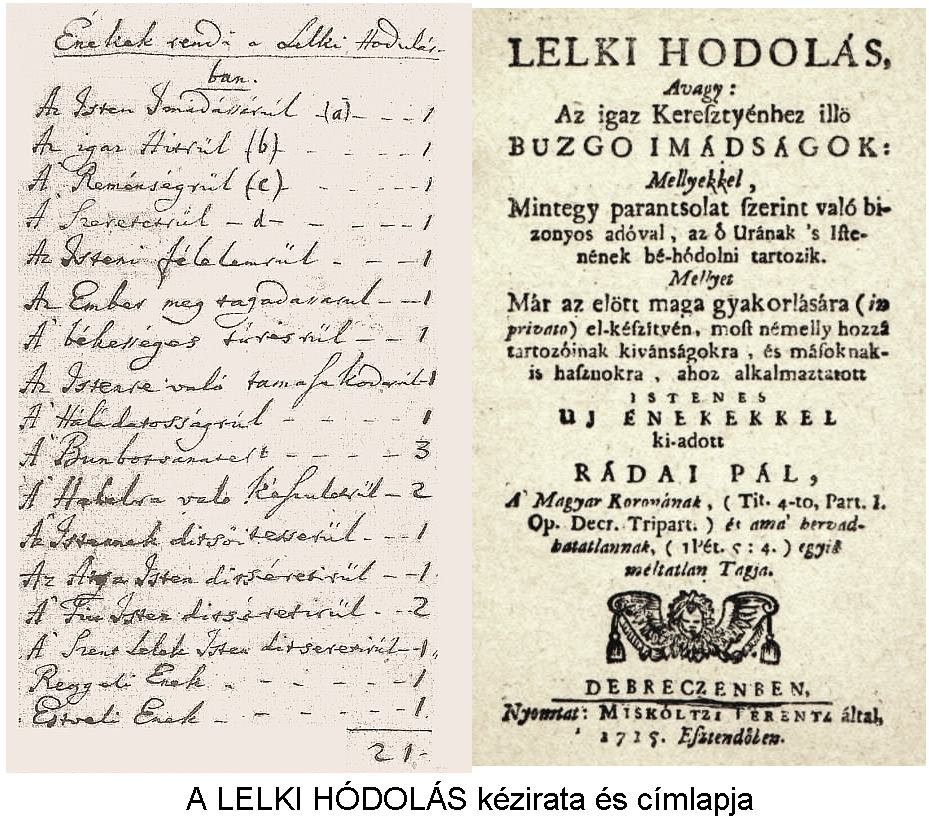 Énekek rendi a Lelki Hodulás-
ban.
Az Isten Imádássárúl (a) - - - 1
Az igaz Hitrül (b) - - - - 1
A' Reménségrül (c) - - - - - 1
A Szeretetrül - d - - - - 1
Az Isteni félelemrül - - - 1
Az Ember meg tagadassarul - - 1
A' békességes türésrül - - 1
Az Istenre való tamaszkodásrúl - 1
A' Háládatosságrúl - - - - 1
A' Bunbotsanatert - - - - 3
A' Halalra való készuletrül - 2
Az Istennek ditsöitesserül - - 1
Az Atya Isten ditséretirül - - 1
A' Fiu Isten ditséretirül - - 2
A' Szent Lelek Isten ditseretirül - 1
Reggeli Enek - - - - - 1
Estveli Enek - - - - - 1
21-
LELKI HODOLÁS,
Avagy:
Az igaz Keresztyénhez illö
BUZGO IMÁDSÁGOK:
Mellyekkel,
Mintegy parantsolat szerint való bi-
zonyos adóval, az ő Urának 's Iste-
nének bé-hódolni tartozik.
Mellyet
Már az elött maga gyakorlására (in
privato) el-készítvén, most némelly hozzá
tartozóinak kivánságokra, és másoknak-
is hasznokra, ahoz alkalmaztatott
ISTENES
UJ ÉNEKEKKEL
ki-adott
RÁDAI PÁL,
A' Magyar Koronának, (Tit. 4-to, Part. I.
Op. Decr. Tripart.) és ama' hervad-
hatatlannak, (1 Pét. 5:4.) egyik
méltatlan Tagja.
DEBRECZENBEN,
Nyomtat: MISKÓLTZI FERENTZ által,
1715. Esztendőben.
A LELKI HÓDOLÁS kézirata és címlapja